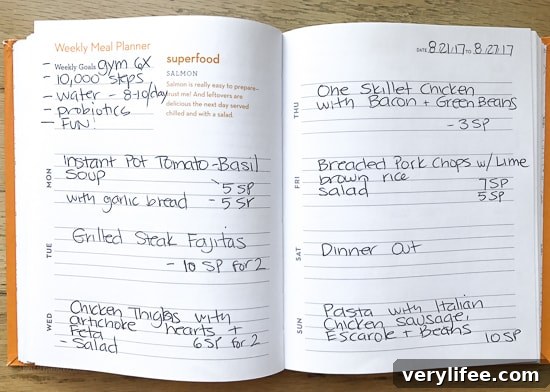 Weekly Meal Planner
Weekly Goals gym 6X
- 10,000 steps
- water - 8-10/day
- probiotics
- FUN!
superfood
SALMON
Salmon is really easy to prepare–
trust me! And leftovers are
delicious the next day served
chilled and with a salad.
MON
Instant Pot Tomato-Basil
Soup
5 SP
with garlic bread - 5 SP
TUE
Grilled Steak Fajitas
- 10 SP for 2
WED
Chicken Thighs with
artichoke hearts +
Feta
- Salad 6 SP for 2
DATE 8.21.17 TO 8/27.17
THU
One Skillet Chicken
with Bacon + Green Beans
- 3 SP
FRI
Breaded Pork Chops w/ Lime
brown rice 7 SP
Salad 5 SP
SAT
Dinner Out
SUN
Pasta with Italian
Chicken sausage,
Escarole + Beans 10 SP
verylifee.com